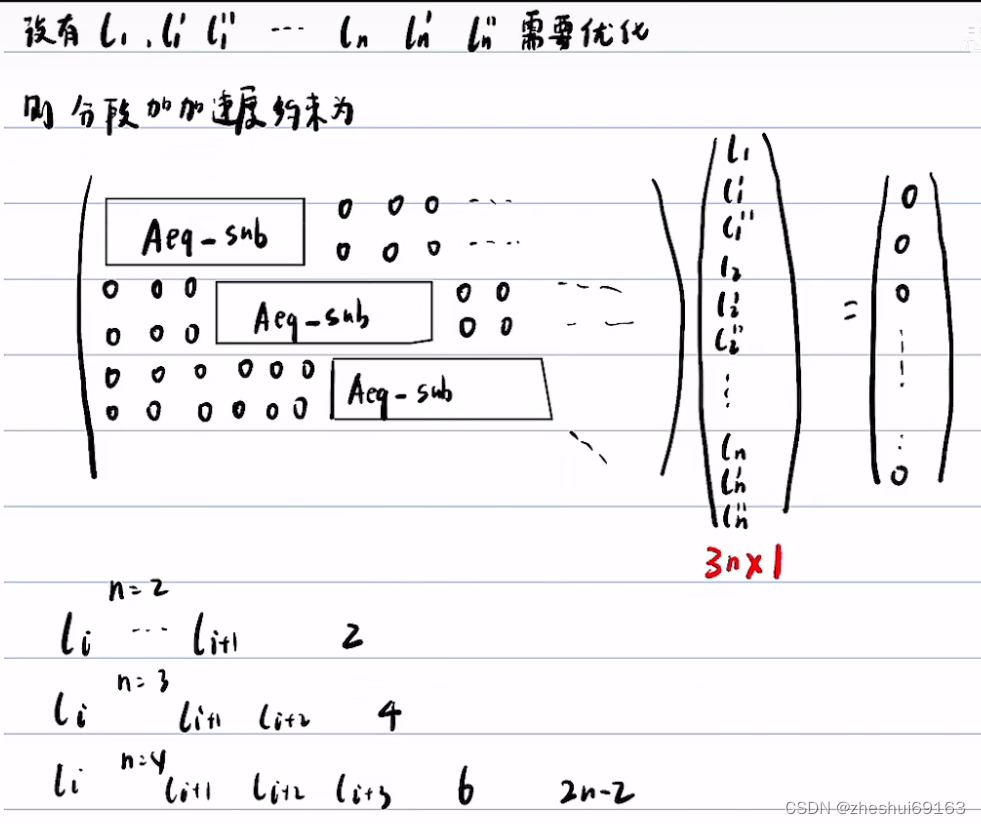 设有 l₁ , l₁' l₁'' ... lₙ lₙ' lₙ'' 需要优化
则 分段加加速度约束为
Aeq-sub 0 0 0 ...
0 0 0 ...
0 0 0 Aeq-sub 0 0 ...
0 0 0 0 0 ...
0 0 0 0 0 0 Aeq-sub
0 0 0 0 0 0
l₁
l₁'
l₁''
l₂
l₂'
l₂''
⋮
lₙ
lₙ'
lₙ''
=
0
0
0
⋮
0
3n×1
n=2
lᵢ ... lᵢ₊₁ 2
n=3
lᵢ lᵢ₊₁ lᵢ₊₂ 4
n=4
lᵢ lᵢ₊₁ lᵢ₊₂ lᵢ₊₃ 6 2n-2
CSDN @zheshui69163